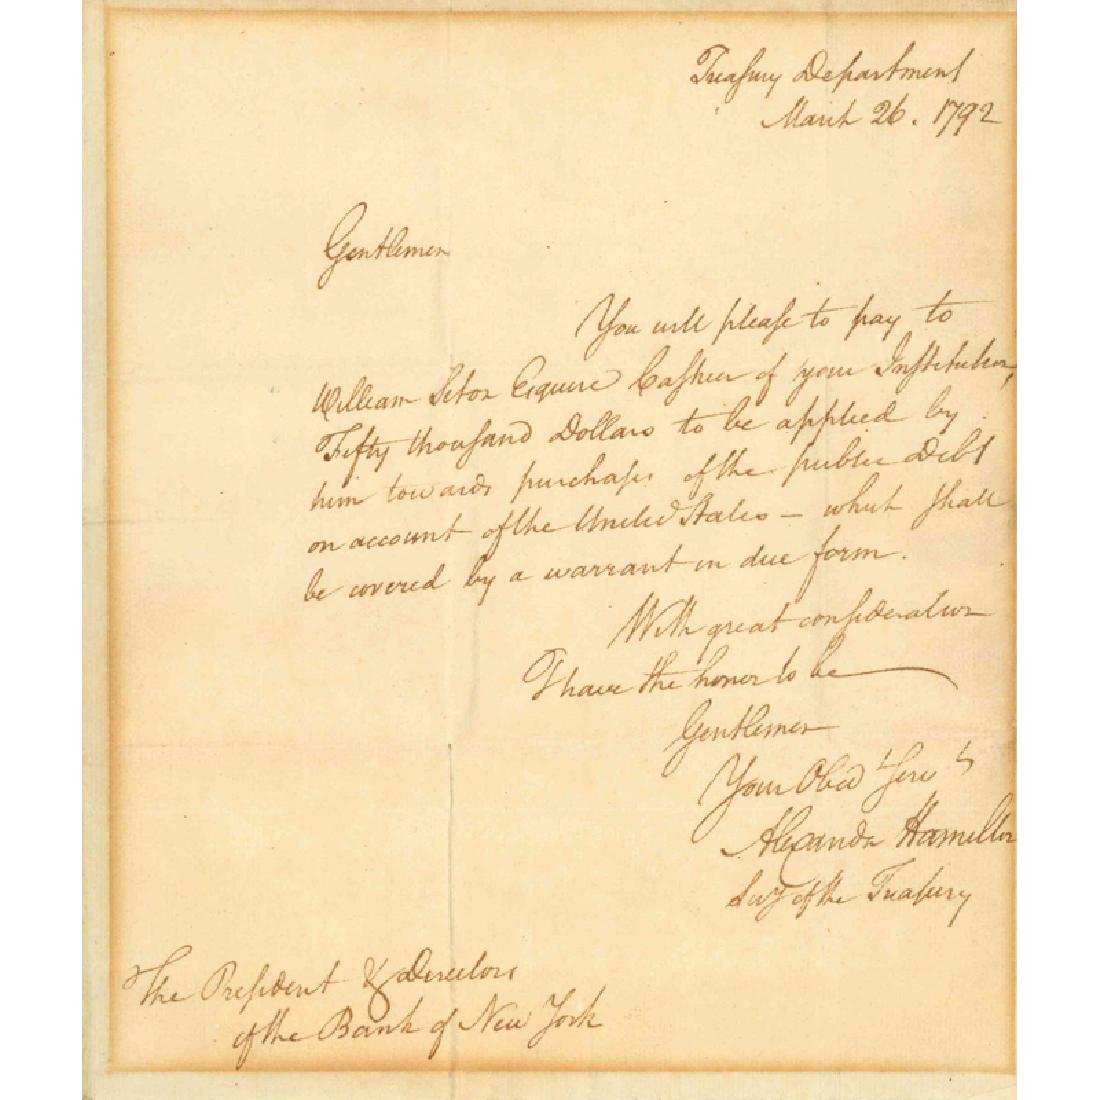 Treasury Department
March 26. 1792
Gentlemen
You will please to pay to
William Seton Esquire Cashier of your Institution,
Fifty thousand Dollars to be applied by
him towards purchases of the public Debt
on account of the United States – which shall
be covered by a warrant in due form.
With great consideration
I have the honor to be
Gentlemen
Your Obed Serv
Alexander Hamilton
Secy of the Treasury
The President & Directors
of the Bank of New York